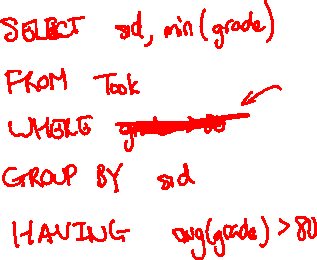 SELECT sid, min(grade)
FROM Took
WHERE
GROUP BY sid
HAVING avg(grade) > 80